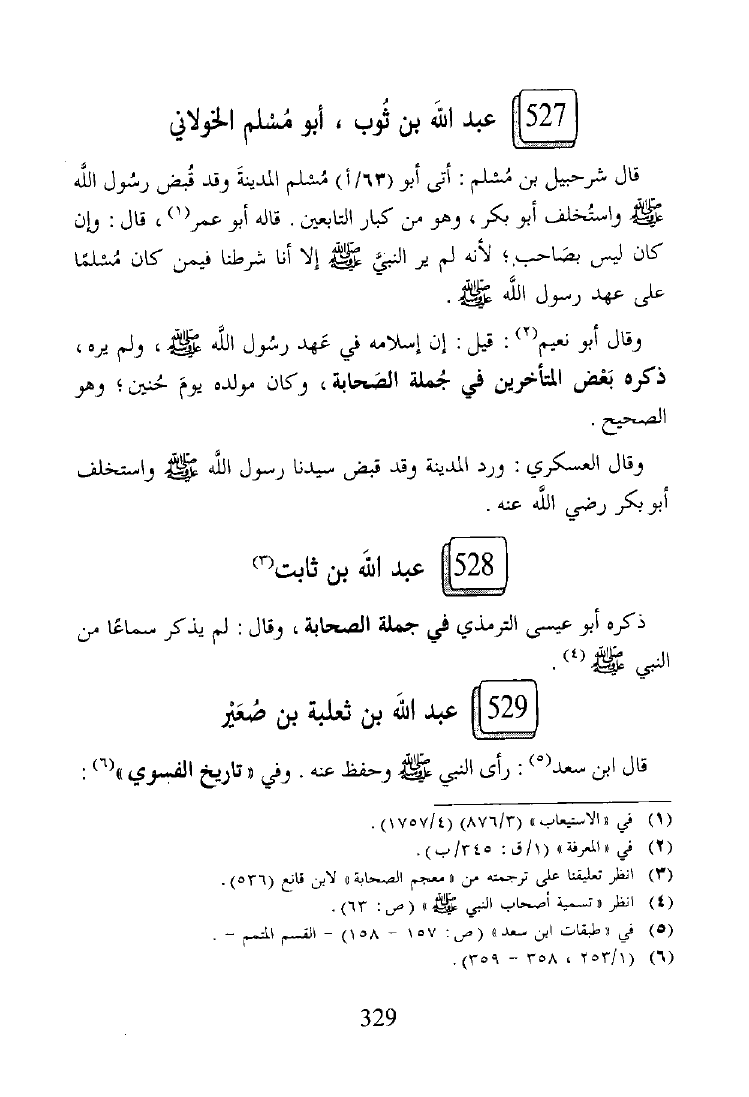 527 عبد اللَّه بن ثُوب ، أبو مُسْلم الخولاني
قال شرحبيل بن مُسْلم : أتى أبو (٦٣/أ) مُسْلم المدينةَ وقد قُبض رسُول اللَّه
ﷺ واستُخلف أبو بكر ، وهو من كبار التابعين . قاله أبو عمر(١) ، قال : وإن
كان ليس بصَاحب ؛ لأنه لم ير النبيَّ ﷺ إلا أنا شرطنا فيمن كان مُسْلمًا
على عهد رسول اللَّه ﷺ .
وقال أبو نعيم(٢) : قيل : إن إسلامه في عَهد رسُول اللَّه ﷺ ، ولم يره ،
ذكره بَعْض المتأخرين في جُملة الصَحابة ، وكان مولده يومَ حُنين ؛ وهو
الصحيح .
وقال العسكري : ورد المدينة وقد قبض سيدنا رسول اللَّه ﷺ واستخلف
أبو بكر رضي اللَّه عنه .
528 عبد اللَّه بن ثابت(٣)
ذكره أبو عيسى الترمذي في جملة الصحابة ، وقال : لم يذكر سماعًا من
النبي ﷺ (٤) .
529 عبد اللَّه بن ثعلبة بن صُعَيْر
قال ابن سعد(٥) : رأى النبي ﷺ وحفظ عنه . وفي « تاريخ الفسوي »(٦) :
(١) في « الاستيعاب » (٨٧٦/٣) (١٧٥٧/٤) .
(٢) في « المعرفة » (١/ق : ٣٤٥/ب) .
(٣) انظر تعليقنا على ترجمته من « معجم الصحابة » لابن قانع (٥٣٦) .
(٤) انظر « تسمية أصحاب النبي ﷺ » ( ص : ٦٣) .
(٥) في « طبقات ابن سعد » ( ص : ١٥٧ - ١٥٨) - القسم المتمم - .
(٦) (٢٥٣/١ ، ٣٥٨ - ٣٥٩) .
329